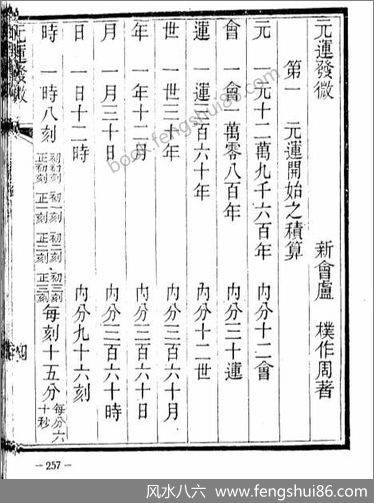 元運發微 新會盧 樸作周著
第一 元運開始之積算
元 一元十二萬九千六百年 內分十二會
會 一會一萬零八百年 內分三十運
運 一運三百六十年 內分十二世
世 一世三十年 內分三百六十月
年 一年十二月 內分三百六十日
月 一月三十日 內分三百六十時
日 一日十二時 內分九十六刻
時 一時八刻 初初刻 正初刻 初一刻 正一刻 初二刻 正二刻 初三刻 正三刻 每刻十五分 每分六十秒
元運發微
—257—
book.fengshui86.com
风水八六 www.fengshui86.com